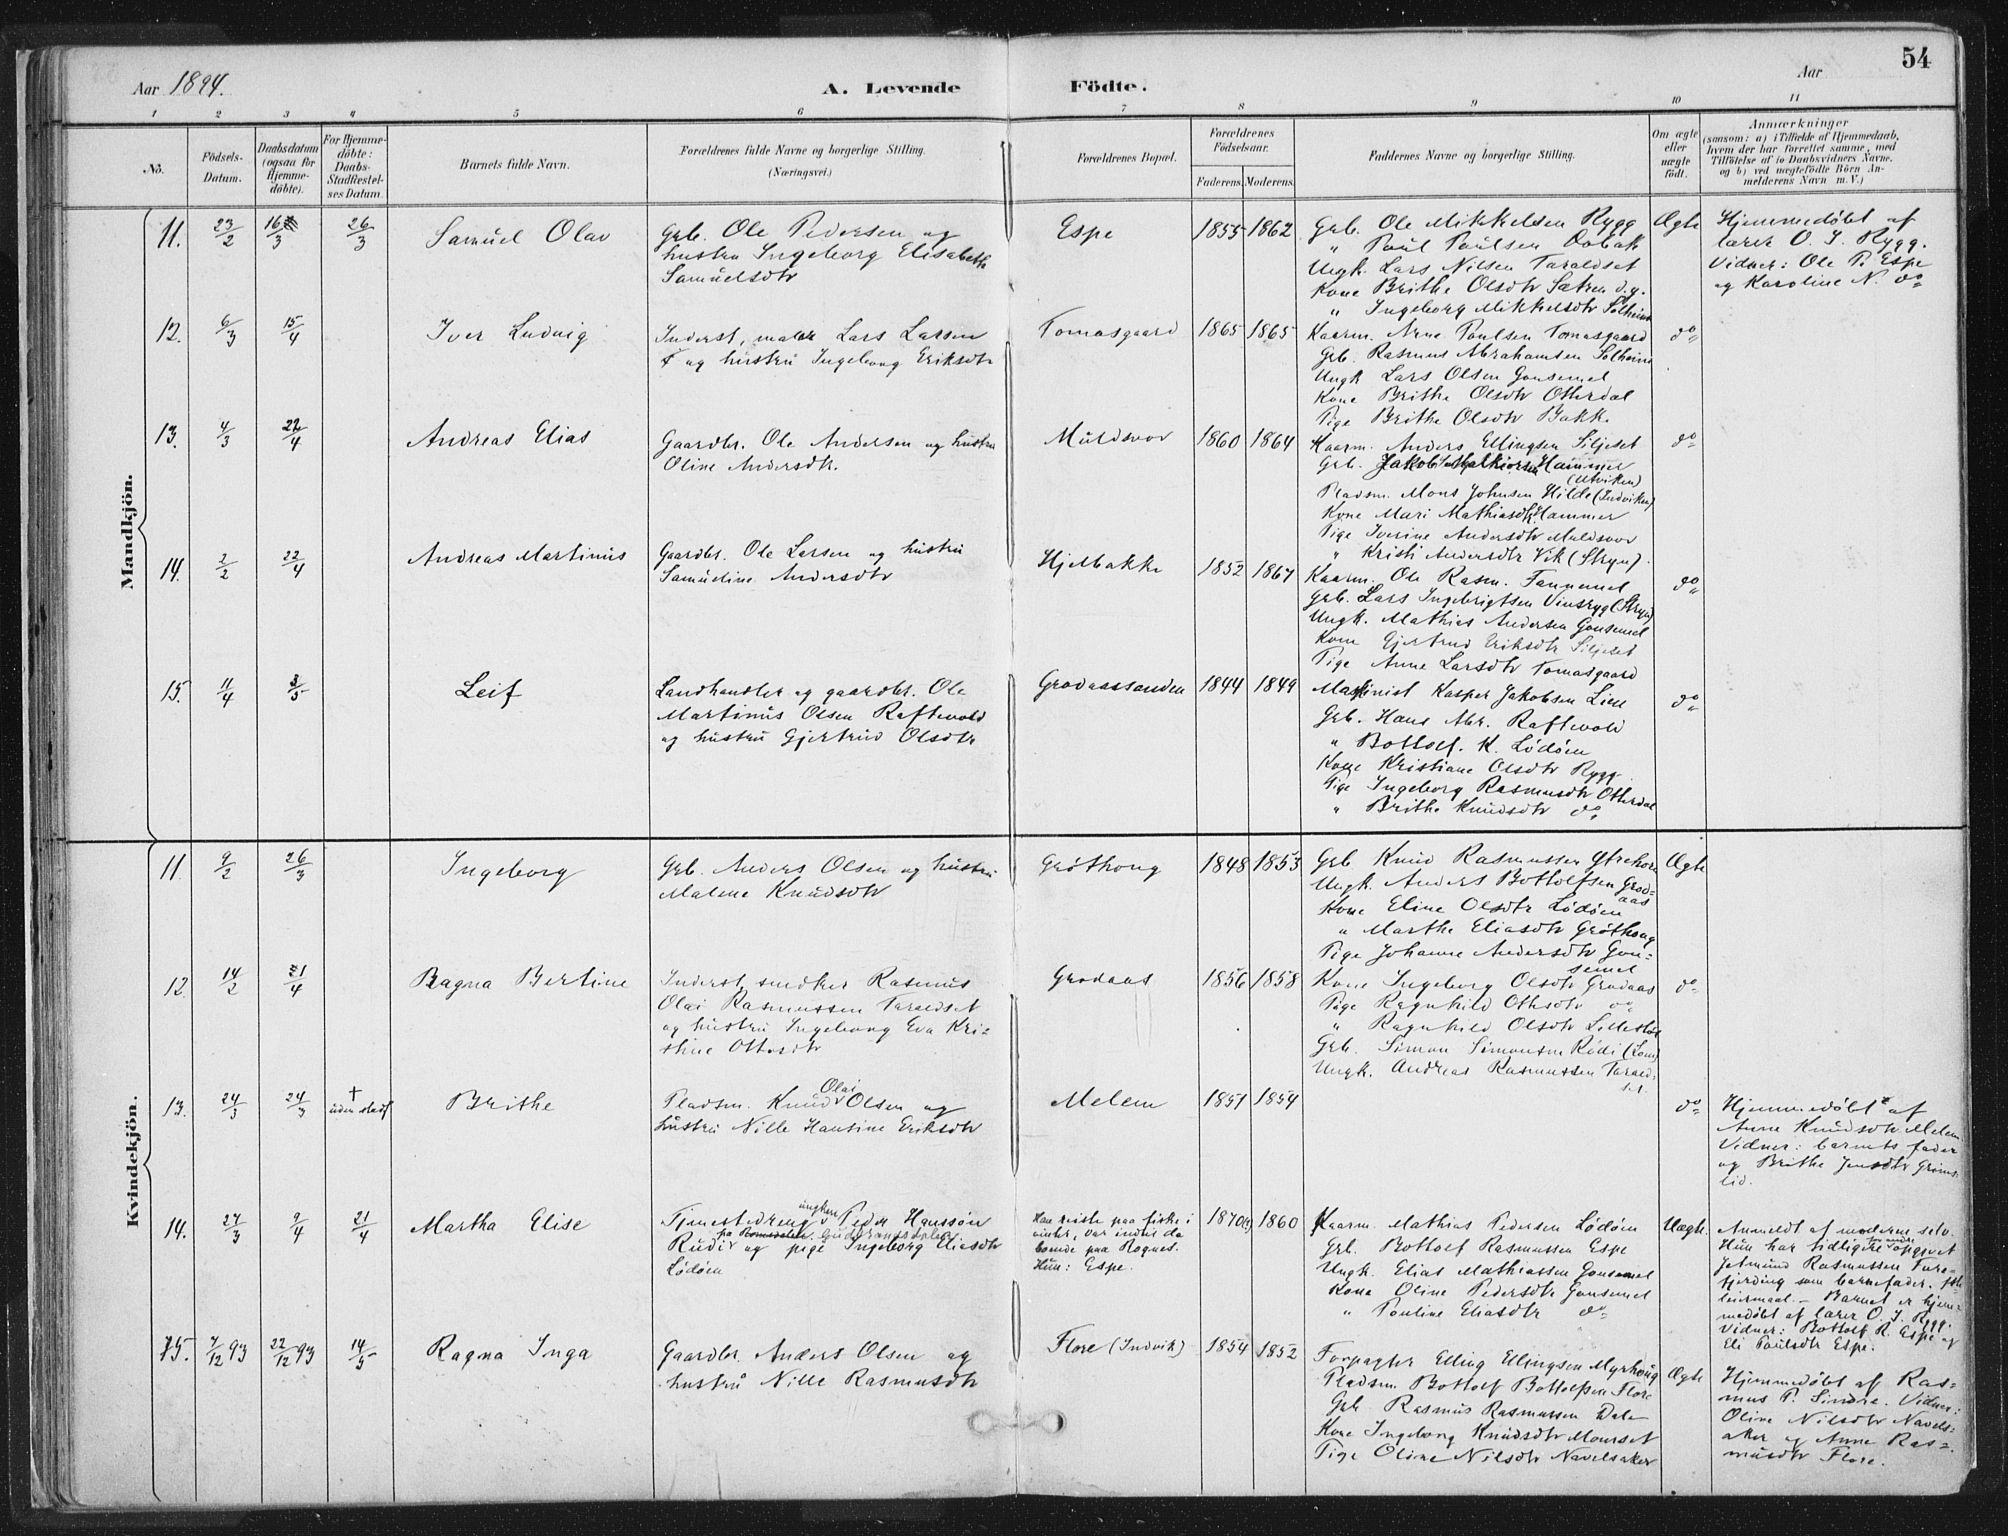 54
Aar 1894.
A. Levende Födte.
Aar
1 2 3 4 5 6 7 8 9 10 11
No.
Födsels-
Datum.
Daabsdatum
(ogsaa for
Hjemme-
döbte).
For Hjemme-
döbte:
Daabs-
Stadfestel-
ses Datum.
Barnets fulde Navn.
Forældrenes fulde Navne og borgerlige Stilling.
(Næringsvei.)
Forældrenes Bopæl.
Forældrenes
Födselsaar.
Faderens. Moderens.
Faddernes Navne og borgerlige Stilling.
Om ægte
eller
uægte
födt.
Anmærkninger
(saasom: a) i Tilfælde af Hjemmedaab,
hvem der har forrettet samme, med
Tilföielse af to Daabsvidners Navne,
og b) ved uægtefödte Börn An-
melderens Navn m. V.)
Mandkjön.
11. 23/2 16/3 26/3 Samuel Olav
Grb. Ole Pedersen og
hustru Ingeborg Elisabeth
Samuelsdtr
Espe 1855 1862
Grb. Ole Mikkelsen Rygg
" Poul Poulsen
Ungk. Lars Nilsen Taraldset
Kone Brithe Olsdtr Sætren d.y.
" Ingeborg Mikkelsdtr Solheim
Ægte
Hjemmedøbt af
lærer O. J. Rygg.
Vidner: Ole P. Espe
og Karoline N. do
12. 6/3 15/4 Iver Ludvig
Inderst, maler Lars Larsen
og hustru Ingeborg Eriksdtr
Tomasgaard 1865 1865
Kaarm. Arne Poulsen Tomasgaard
Grb. Rasmus Abrahamsen Solheim
Ungk. Lars Olsen Gausemel
Kone Brithe Olsdtr Otterdal
Pige Brithe Olsdtr Bakke
do
13. 4/3 22/4 Andreas Elias
Gaardbr. Ole Andersen og hustru
Oline Andersdtr.
Muldsvor 1860 1864
Kaarm. Anders Ellingsen Siljeset
Grb. Jakob Melkiorsen Hammer
(Utviken)
Pladsm. Mons Johnsen Hilde (Indviken)
Kone Mari Mathiasdtr Hammer
Pige Iverine Andersdtr Muldsvor
" Kristi Andersdtr Vik (Stryn).
do
14. 2/2 22/4 Andreas Martinus
Gaardbr. Ole Larsen og hustru
Samueline Andersdtr
Hjelbakke 1852 1867
Kaarm. Ole Rasm. Tannemel
Grb. Lars Ingebrigtsen Vinsryg (Stryn)
Ungk. Mathias Andersen Gausemel
Kone Gjertrud Eriksdtr Siljeset
Pige Anne Larsdtr Tomasgaard
do
15. 11/4 3/5 Leif
Landhandler og gaardbr. Ole
Martinus Olsen Raftevold
og hustru Gjertrud Olsdtr
Grodaassanden 1844 1849
Maskinist Kasper Jakobsen Lien
Grb. Hans Abr. Raftevold
" Bottolf. K. Lödöen
Kone Kristiane Olsdtr Rygg
Pige Ingeborg Rasmusdtr Otterdal
" Brithe Knudsdtr do
do
Kvindekjön.
11. 9/2 26/3 Ingeborg
Grb. Anders Olsen og hustru
Malene Knudsdtr
Gröthoug 1848 1853
Grb. Knud Rasmussen Ytrehorn
Ungk. Anders Bottolfsen Grod=
aas
Kone Eline Olsdtr Lödöen
" Marthe Eliasdtr Gröthoug
Pige Johanne Andersdtr Gau-
semel
Ægte
12. 14/2 21/4 Ragna Bertine
Inderst, snedker Rasmus
Olai Rasmussen Taraldset
og hustru Ingeborg Eva Kri=
stine Ottosdtr
Grodaas 1856 1858
Kone Ingeborg Olsdtr Grodaas
Pige Ragnhild Othsdtr do
" Ragnhild Olsdtr
Grb. Simon Simonsen Rödi (Lom)
Ungk. Andreas Rasmussen Tarald-
set.
do
13. 24/3 24/3 † uden stadf Brithe
Pladsm. Knud Olai Olsen og
hustru Nille Hansine Eriksdtr
Melem 1851 1854
do
Hjemmedøbt af
Anne Knudsdtr Melem
Vidner: barnets fader
og Brithe Jensdtr Grims-
lid.
14. 27/3 9/4 21/4 Martha Elise
Tjenestedreng, ungkar Peder Hanssön
på Gudbrandsdalen
Rudi og pige Ingeborg Eliasdtr
Lödöen
Han reiste paa fiske i
vinter, var inden da
boende paa Rognes.
Hun: Espe.
1870 1860
Kaarm. Mathias Pedersen Lödöen
Grb. Bottolf Rasmussen Espe
Ungk. Elias Mathiassen Gausemel
Kone Oline Pedersdtr Gausemel
" Pauline Eliasdtr do
Uægte.
Anmeldt af moderen selv.
Hun har tidligere opgivet
Jetmund Rasmussen Tura-
fjerding som barnefader.
leiermaal. – Barnet er hjem-
medøbt af lærer O. J. Rygg.
Vidner: Bottolf R. Espe og
Eli Paulsdtr Espe.
15. 7/12 93 22/12 93 14/5 Ragna Inga
Gaardbr. Anders Olsen og
hustru Nille Rasmusdtr
Flore (Indvik) 1854 1852
Forpagter Elling Ellingsen Myrhoug
Pladsm Bottolf Bottolfsen Flore
Grb Rasmus Rasmussen Dale
Kone Ingeborg Knudsdtr Maurset
Pige Oline Nilsdtr Navelsaker
Ægte
Hjemmedøbt af Ras=
mus P. Sindre. Vidner:
Oline Nilsdtr Navels-
aker og Anne Ras=
musdtr Flore.